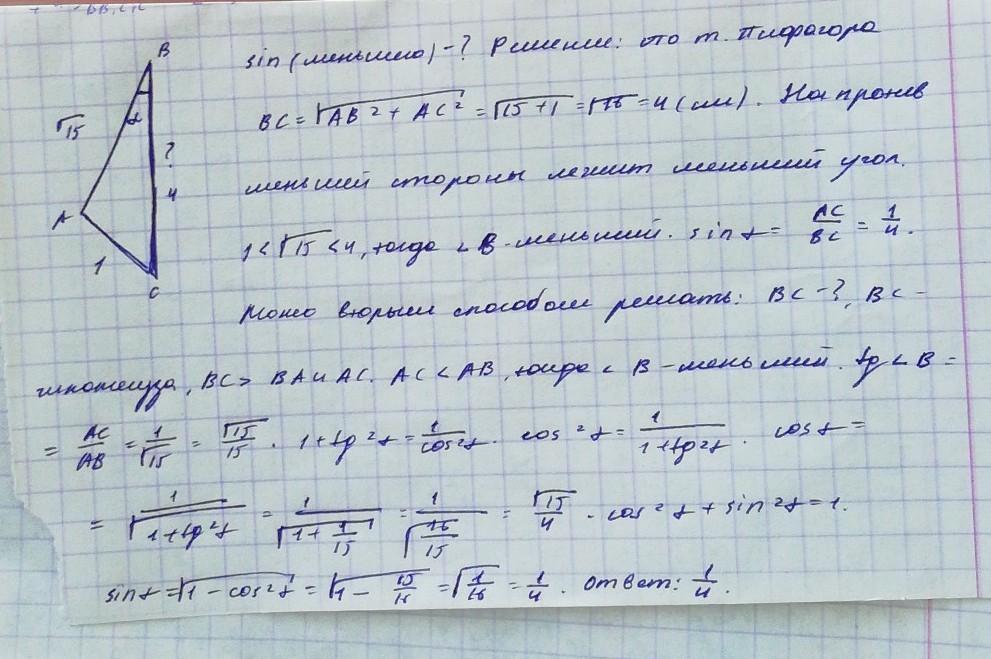 B
√15
α
?
4
A
1
C
sin (меньшего) -? Решение: по т. Пифагора
BC = √(AB² + AC²) = √(15+1) = √16 = 4 (см). Напротив
меньшей стороны лежит меньший угол.
1 < √15 < 4, тогда ∠B - меньший. sin α = AC/BC = 1/4.
Можно вторым способом решать: BC -?, BC -
гипотенуза, BC > BA и AC. AC < AB, тогда ∠ B - меньший. tg ∠ B =
= AC/AB = 1/√15 = √15/15. 1 + tg²α = 1/cos²α. cos²α = 1/(1+tg²α). cos α =
= 1/√(1+tg²α) = 1/√(1+1/15) = 1/√(16/15) = √15/4. cos²α + sin²α = 1.
sin α = √(1 - cos²α) = √(1 - 15/16) = √(1/16) = 1/4. Ответ: 1/4.